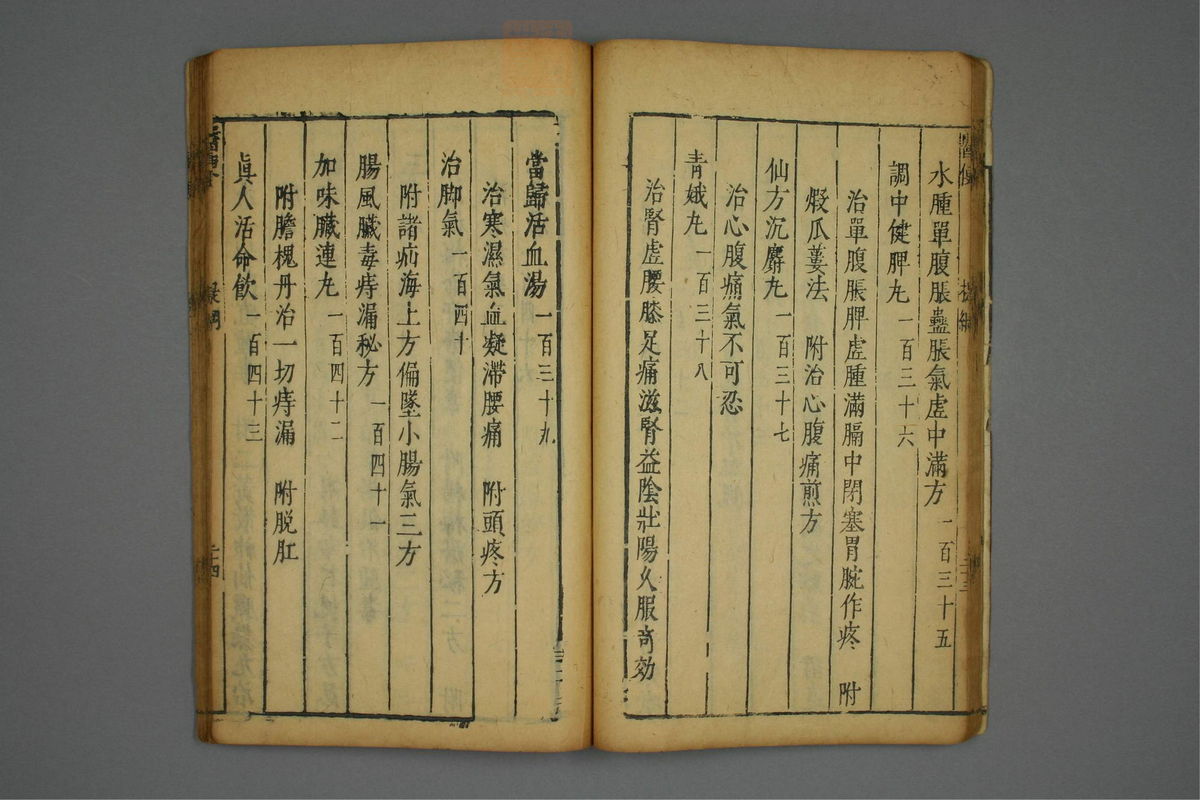 水腫單腹脹蠱脹氣虛中滿方 一百三十五
調中健脾丸 一百三十六
治單腹脹脾虛腫滿膈中閉塞胃腕作疼 附
煅瓜蔞法 附治心腹痛煎方
仙方沉麝丸 一百三十七
治心腹痛氣不可忍
青娥丸 一百三十八
治腎虛腰膝足痛滋腎益陰壯陽久服奇効
當歸活血湯 一百三十九
治寒濕氣血凝滯腰痛 附頭疼方
治脚氣 一百四十
附諸疝海上方偏墜小腸氣三方
腸風臟毒痔漏秘方 一百四十一
加味臟連丸 一百四十二
附膽槐丹治一切痔漏 附脱肛
眞人活命飲 一百四十三
二十四